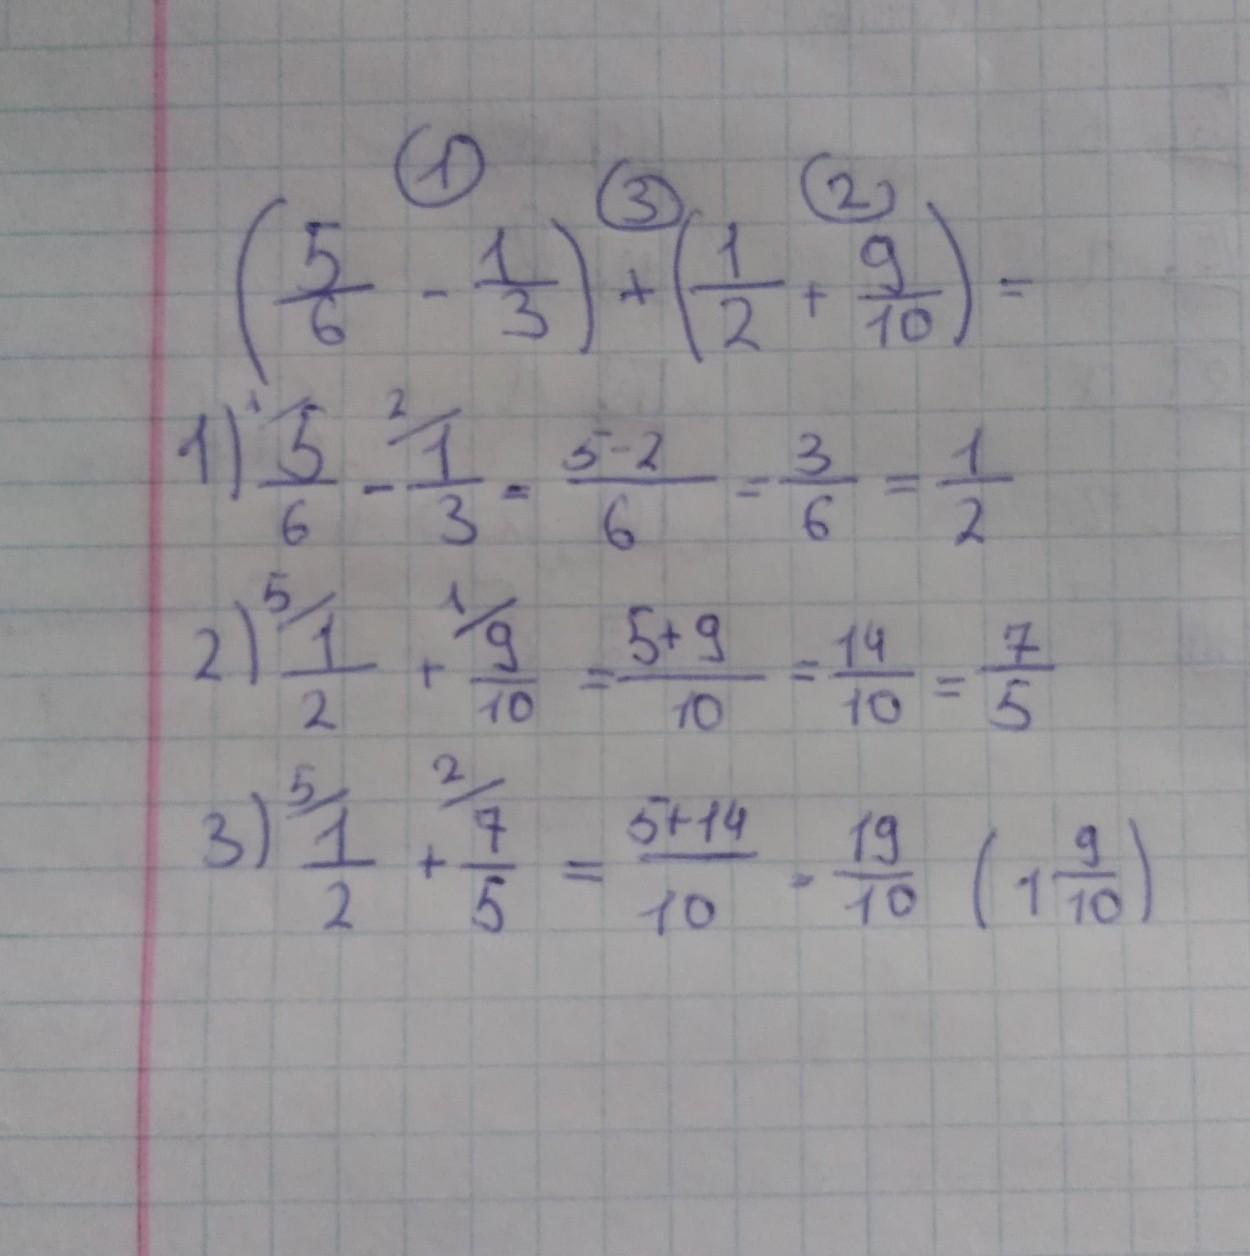 ① ③ ②
(5/6 - 1/3) + (1/2 + 9/10) =
1) ¹⁄5/6 - ²⁄1/3 = 5-2/6 = 3/6 = 1/2
2) ⁵⁄1/2 + ¹⁄9/10 = 5+9/10 = 14/10 = 7/5
3) ⁵⁄1/2 + ²⁄7/5 = 5+14/10 = 19/10 (1 9/10)